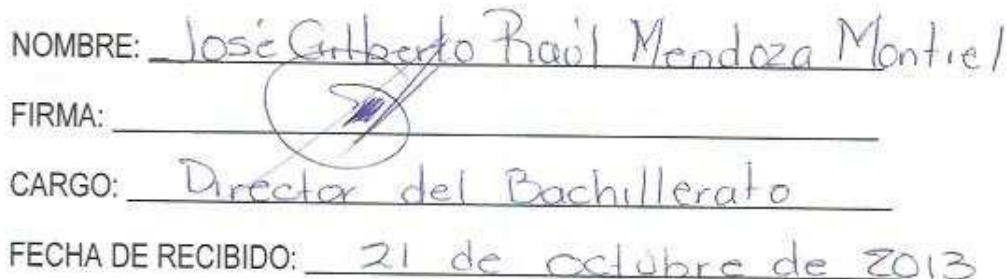 NOMBRE: José Gilberto Raúl Mendoza Montiel
FIRMA:
CARGO: Director del Bachillerato
FECHA DE RECIBIDO: 21 de octubre de 2013